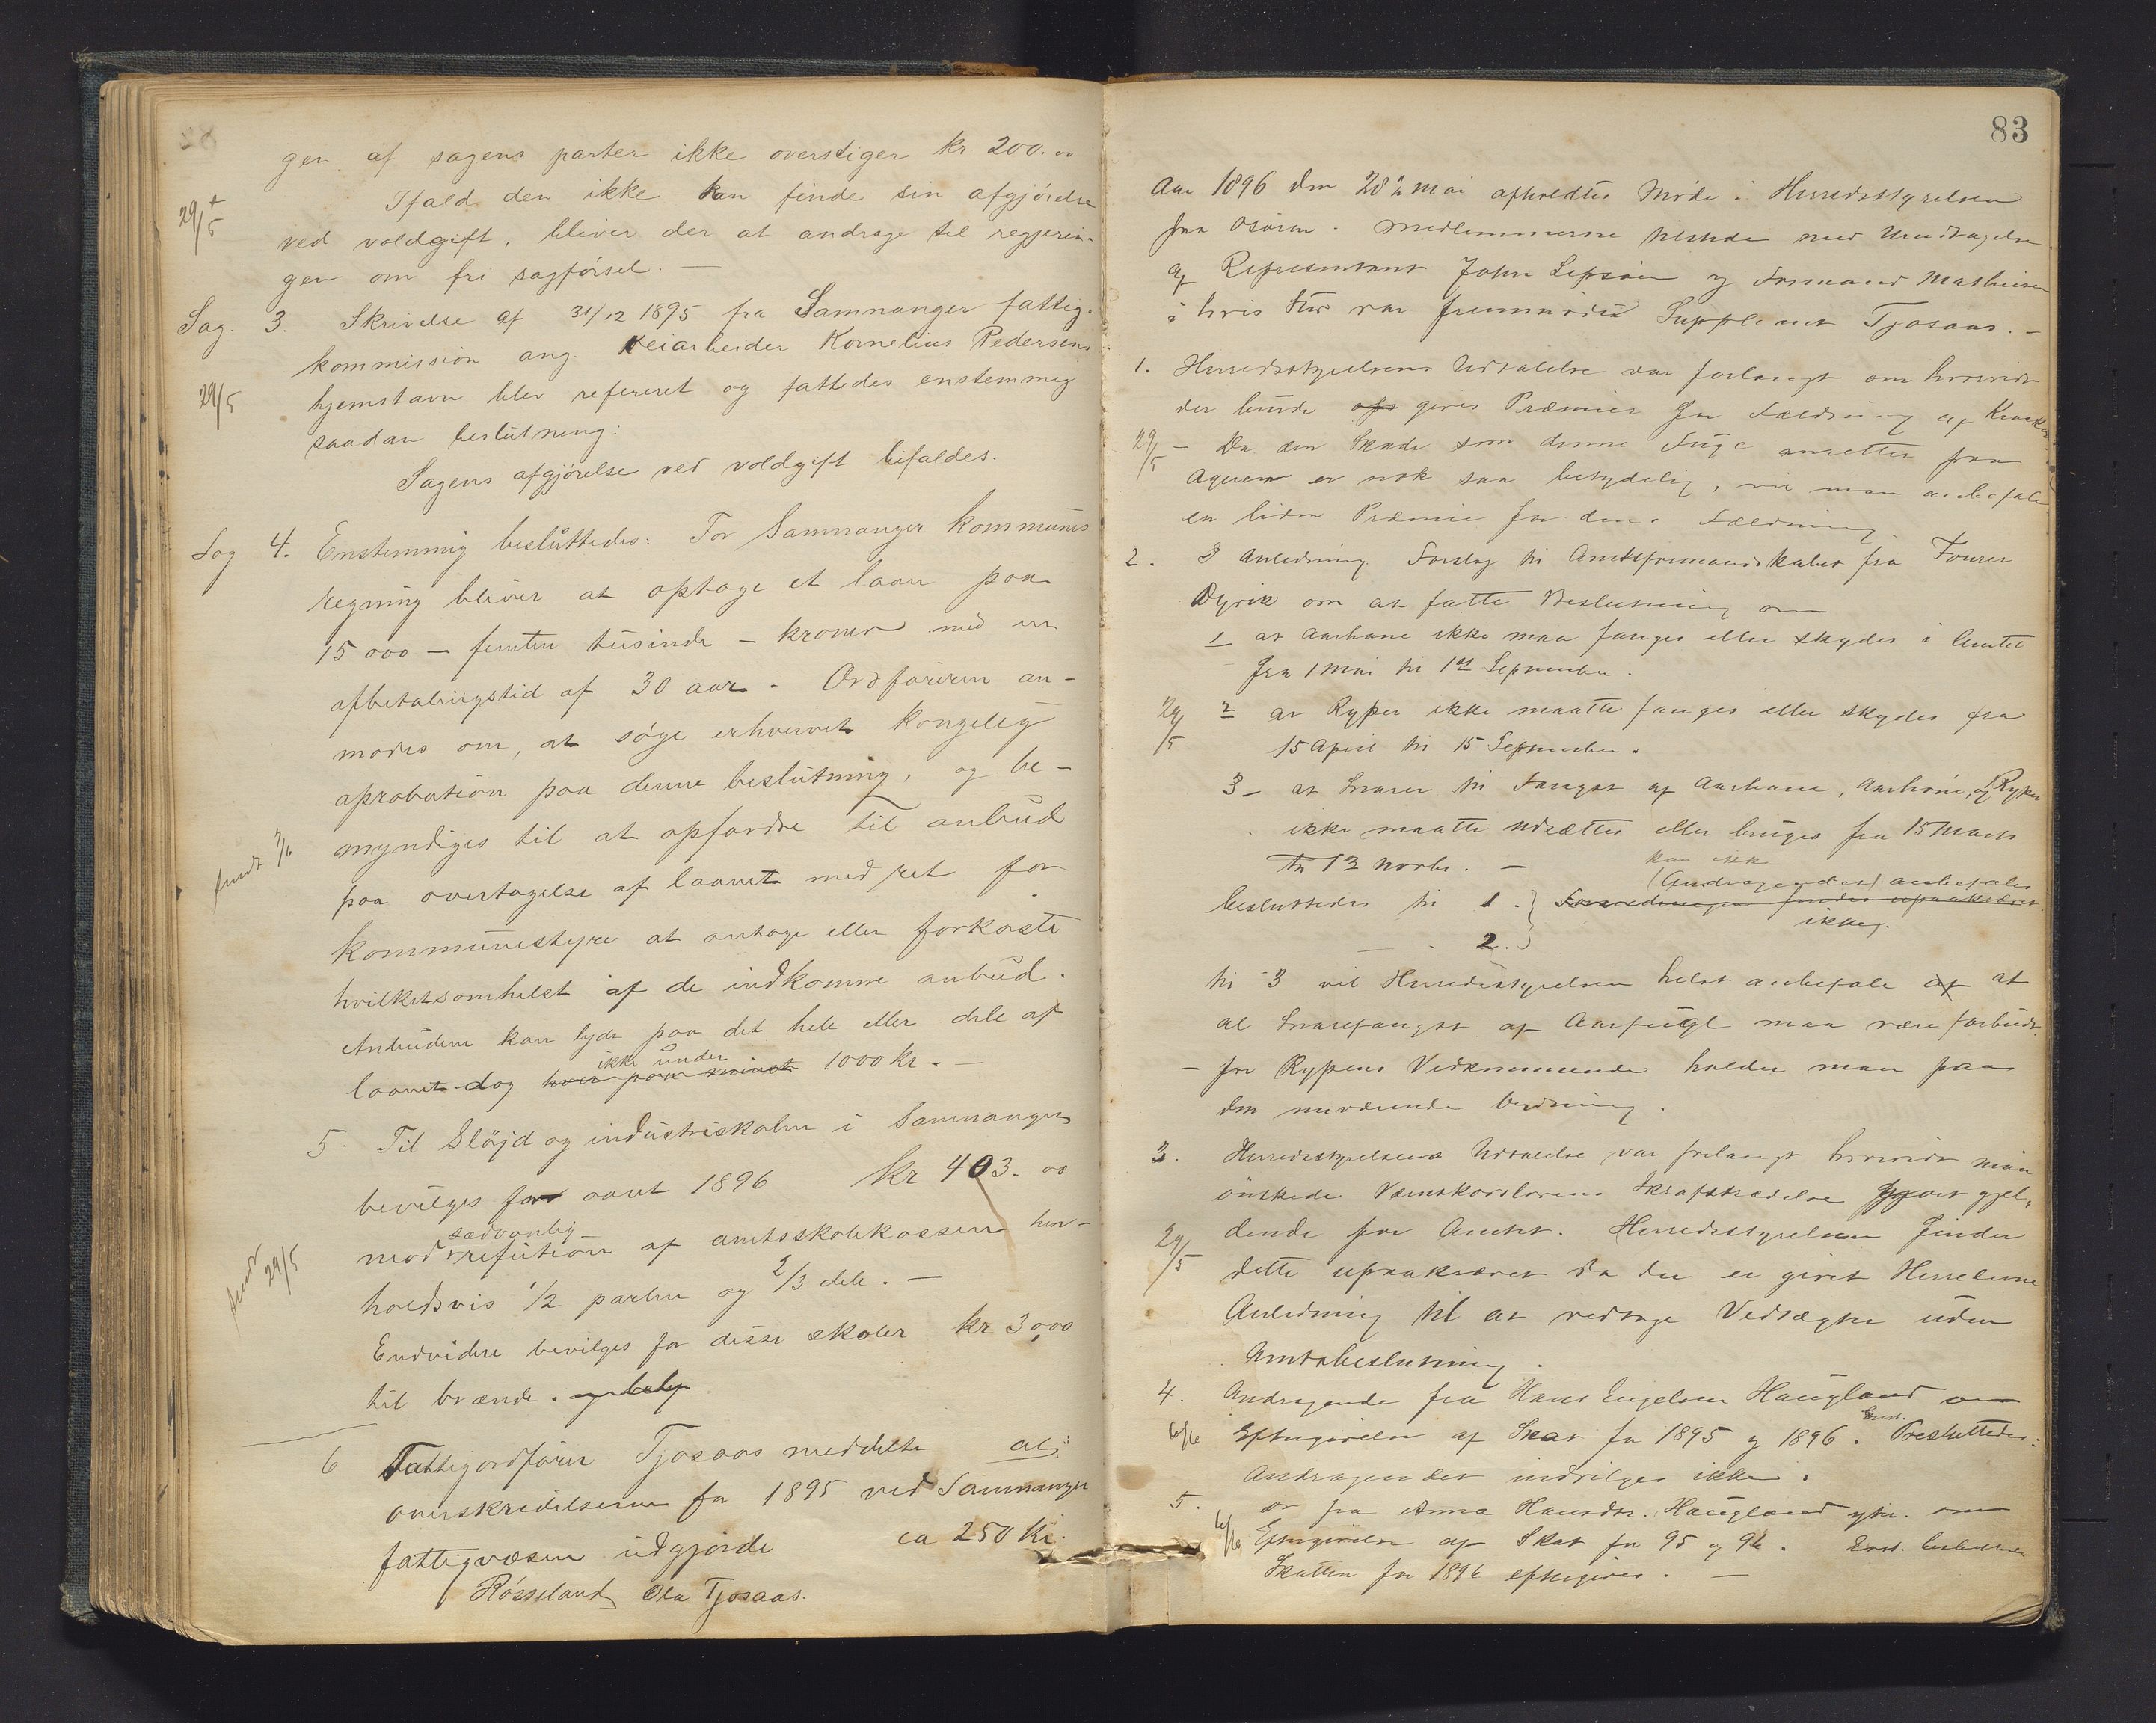 gen af sagens parter ikke overstiger kr 200.00
29/5 +
Ifald den ikke kan finde sin afgjörelse
ved voldgift, bliver der at andrage til regjerin-
gen om fri sagförsel. —
Sag. 3. Skrivelse af 31/12 1895 fra Samnanger fattig-
kommission ang. Veiarbeider Kornelius Pedersens
29/5
hjemstavn blev refereret og fattedes enstemmig
saadan beslutning:
Sagens afgjörelse ved voldgift bifaldes.
Sag 4. Enstemmig besluttedes: For Samnanger kommunes
regning bliver at optage et laan paa
15000 — femten tusinde — kroner med en
afbetalingstid af 30 aar. Ordföreren an-
modes om, at söge erhvervet kongelig
aprobation paa denne beslutning, og be-
myndiges til at opfordre til anbud
sendt 3/6
paa overtagelse af laanet med ret for
kommunestyre at antage eller forkaste
hvilketsomhelst af de indkomne anbud.
Anbudene kan lyde paa det hele eller dele af
ikke under
laanet dog hver paa mindst 1000 kr. —
5. Til Slöjd og industriskolen i Samnanger
bevilges for aaret 1896 kr 403.00
sædvanlig
mod refution af amtsskolekassen hen-
sendt 29/5
holdsvis 1/2 parten og 2/3 dele. —
Endvidere bevilges for disse skoler kr 30,00
til brænde.
6 Fattigordförer Tjosaas meddelte at:
overskridelserne for 1895 ved Samnanger
fattigvæsen udgjorde ca 250 Kr.
Rösseland Ola Tjosaas.
83
Aar 1896 den 28de Mai afholdtes Möde i Herredsstyrelsen
paa Osören. Medlemmerne tilstede med Undtagelse
af Repræsentant John Lepsöen og Formand Mathiesen
i hvis sted var fremmödt Suppleant Tjosaas. —
1. Herredsstyrelsens Udtalelse var forlangt om hvorvidt
der burde gives Præmier for Fældning af Kraaker
29/5 — Da den Skade som denne Fugl anretter paa
Ageren er nok saa betydelig, vil man anbefale
en liden Præmie for dens Fældning.
2. I Anledning Forslag til Amtsformandskabet fra Foreren
Dyrik om at fatte Beslutning om
1 at Aarhane ikke maa fanges eller skydes i Amtet
fra 1 Mai til 1ste September.
29/5 2 at Ryper ikke maatte fanges eller skydes fra
15 April til 15 September.
3 — at Snarer til Fangst af Aarhane, Aarhöne, og Ryper
ikke maatte udsættes eller bruges fra 15 Marts
til 1ste Novbr. —
kan ikke
(Andragendet) anbefales
besluttedes til 1. } findes upaakrævet
ikke.
— " — 2. }
til 3 vil Herredsstyrelsen helst anbefale at
al Snarefangst af Aarfugl maa være forbudt.
— for Rypens Vedkommende holder man paa
den nuværende Ordning.
3. Herredsstyrelsens Udtalelse var forlangt hvorvidt man
önskede Værnskovlovens Skrafskrædelse gjort gjel-
29/5
dende for Amtet. Herredsstyrelsen finder
dette upaakrævet da der er givet Herrederne
Anledning til at vedtage Vedtægter uden
Amtsbeslutning.
4. Andragende fra Hans Engelsen Haugland om
Enst.
6/6 Eftergivelse af Skat for 1895 og 1896. Besluttedes:
Andragendet indvilges ikke.
5. do fra Anna Hansdtr. Haugland ytre. om
6/6 Eftergivelse af Skat for 95 og 96. Enst. besluttedes
Skatten for 1896 eftergives. —